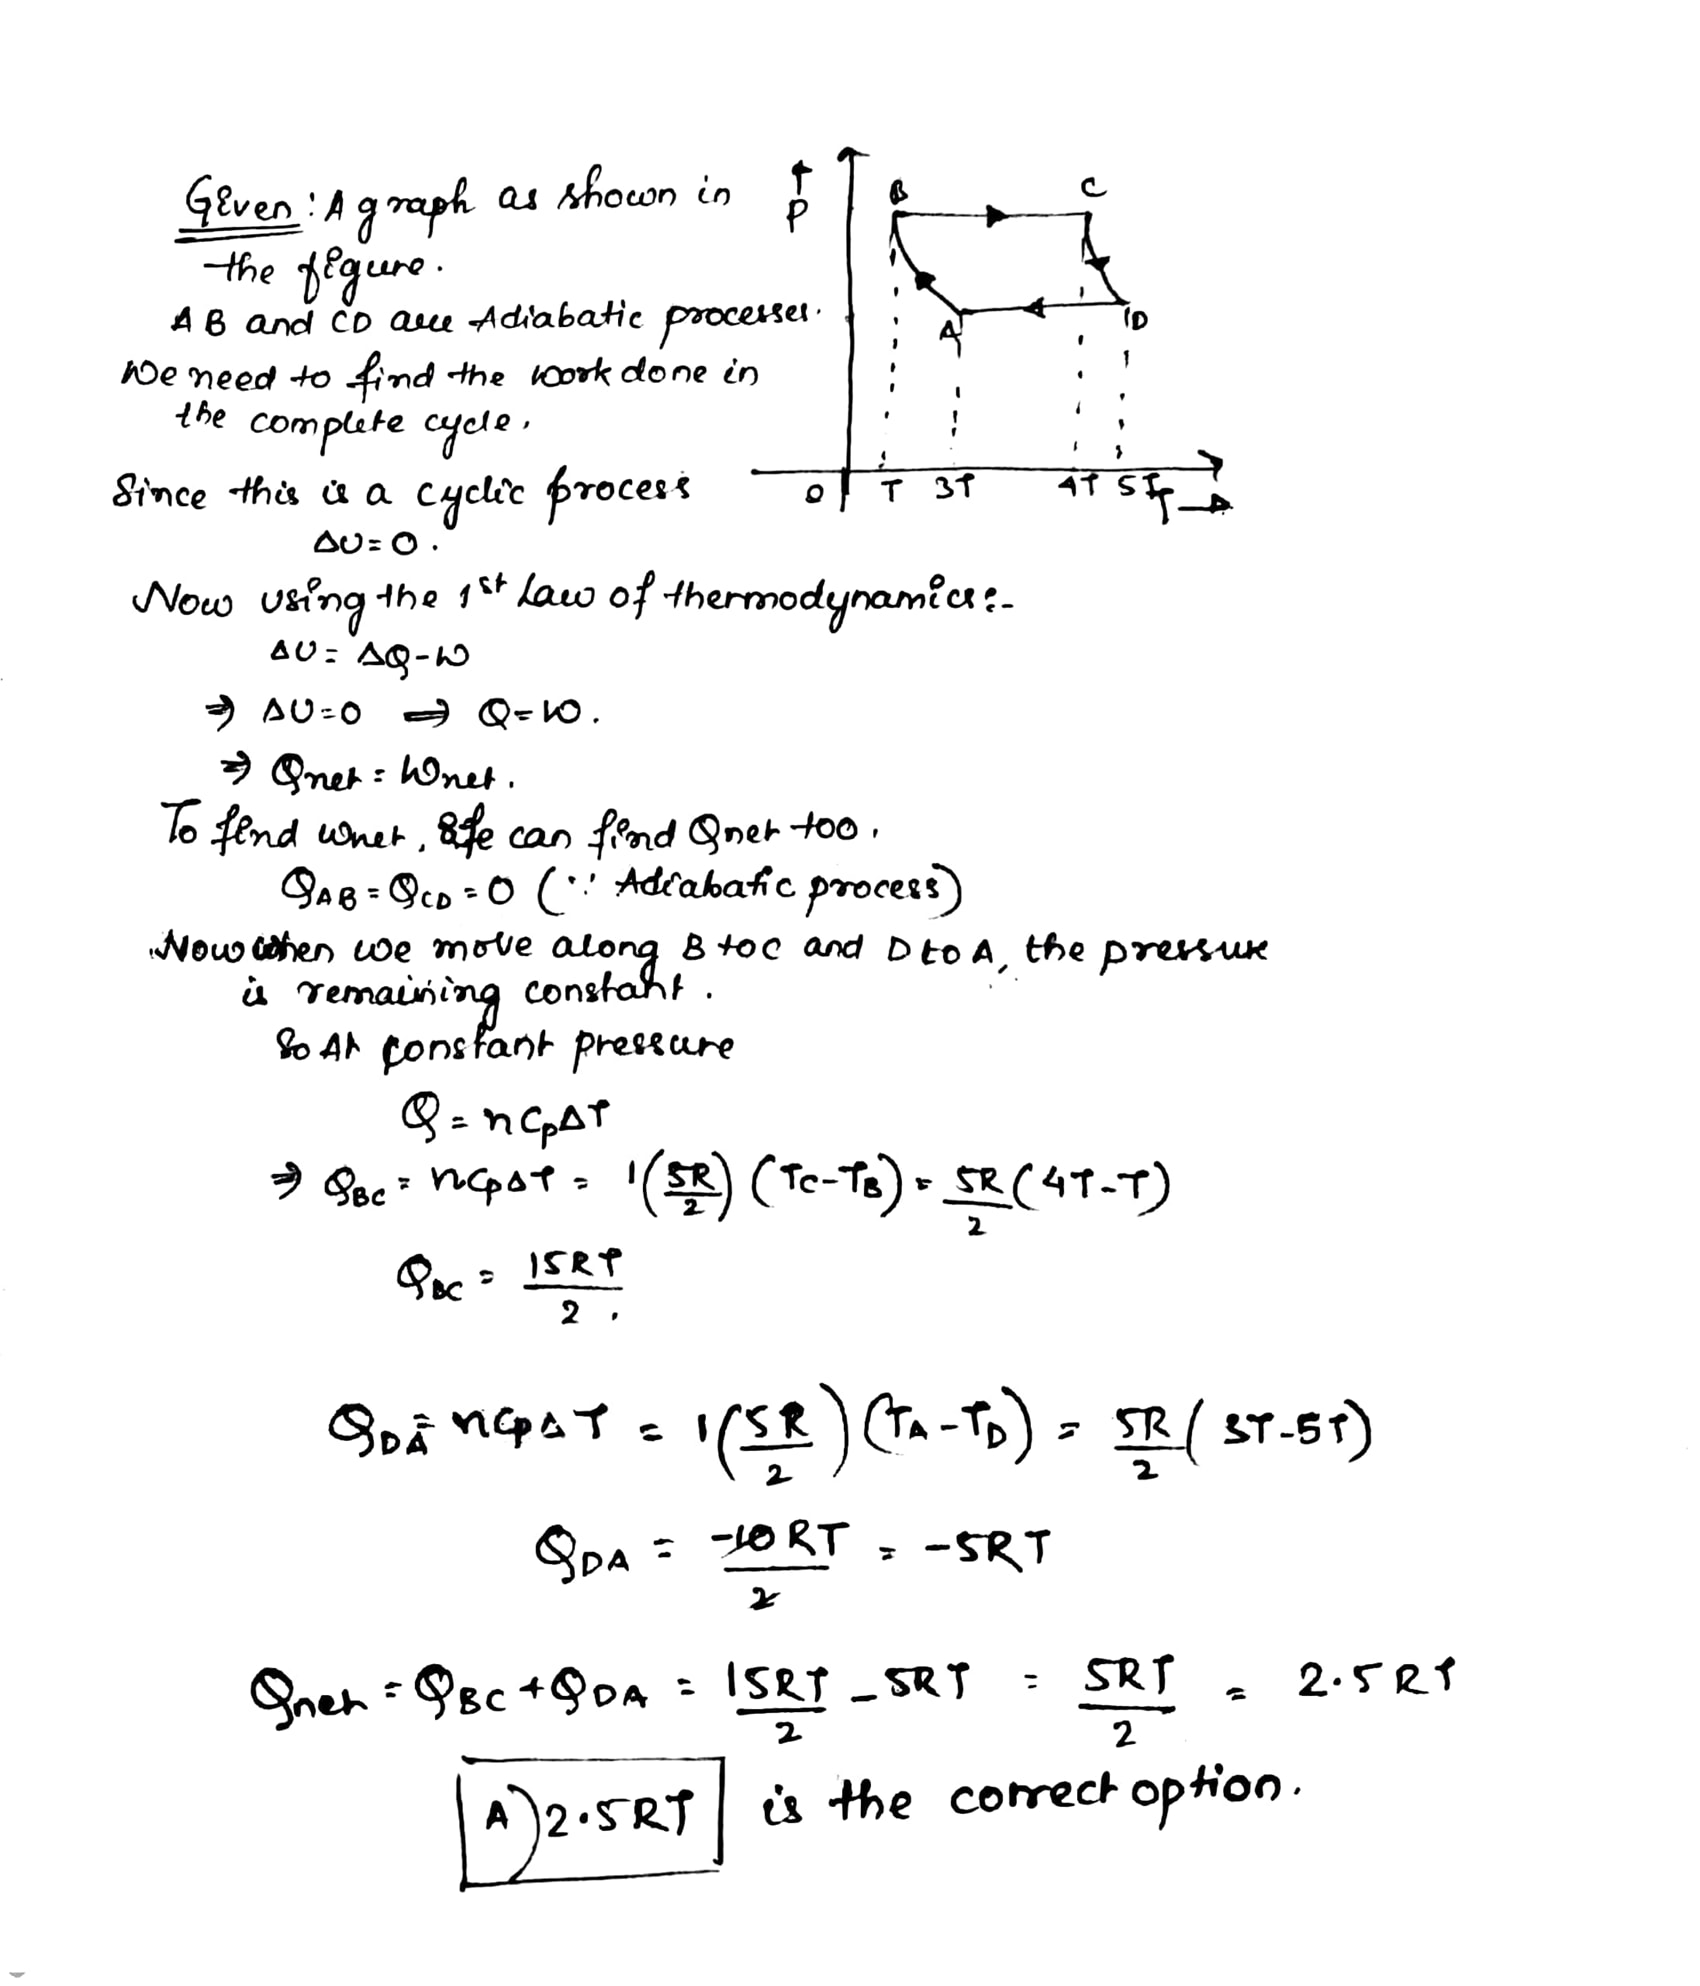 Given: A graph as shown in
the figure.
AB and CD are Adiabatic processes.
We need to find the work done in
the complete cycle.
Since this is a cyclic process
ΔU=0.
↑
P
B
C
A
D
O
T
3T
4T
5T
T→
Now using the 1st Law of thermodynamics:-
ΔU= ΔQ-W
⇒ ΔU=0 ⇒ Q=W.
⇒ Qnet = Wnet.
To find wnet, we can find Qnet too.
QAB = QCD = 0 (∵ Adiabatic process)
Now when we move along B to C and D to A, the pressure
is remaining constant.
So At constant pressure
Q = nCpΔT
⇒ QBC = nCpΔT = 1(5R/2) (TC-TB) = 5R/2 (4T-T)
QBC = 15RT/2.
QDA = nCpΔT = 1(5R/2) (TA-TD) = 5R/2 (3T-5T)
QDA = -10RT/2 = -5RT
Qnet = QBC + QDA = 15RT/2 - 5RT = 5RT/2 = 2.5RT
A) 2.5RT is the correct option.